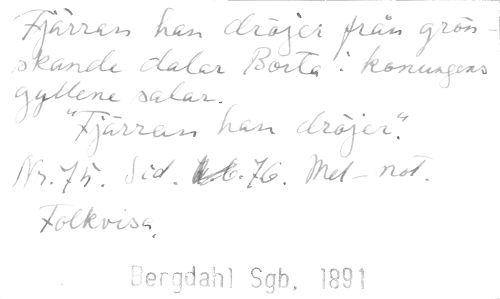 Fjärran han dröjer från grön-
skande dalar Borta i konungens
gyllene salar.
"Fjärran han dröjer".
Nr. 75. Sid. 76. Mel-not.
Folkvisa.
Bergdahl Sgb. 1891